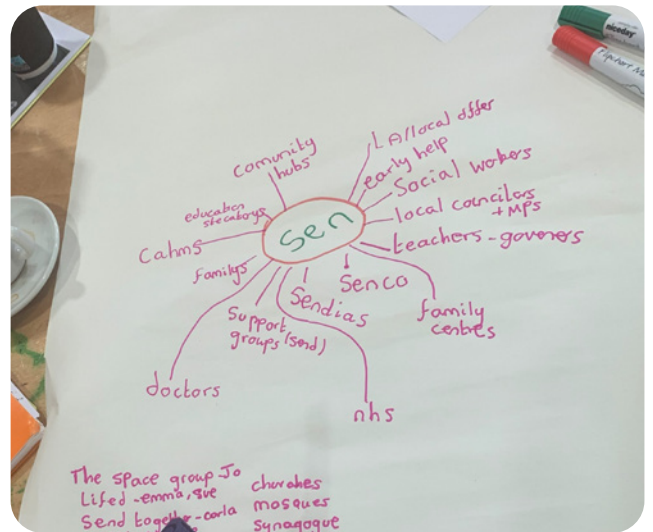 niceday
Flipchart Ma
Comunity
hubs
LA/local offer
early help
Social workers
local councilors
+ MPs
teachers - goveners
family
centres
Senco
Sendias
nhs
Support
groups (send)
doctors
familys
Cahms
education
sen
The space group Jo
Lifed - emma, sue
Send together - carla
churches
mosques
synagogue